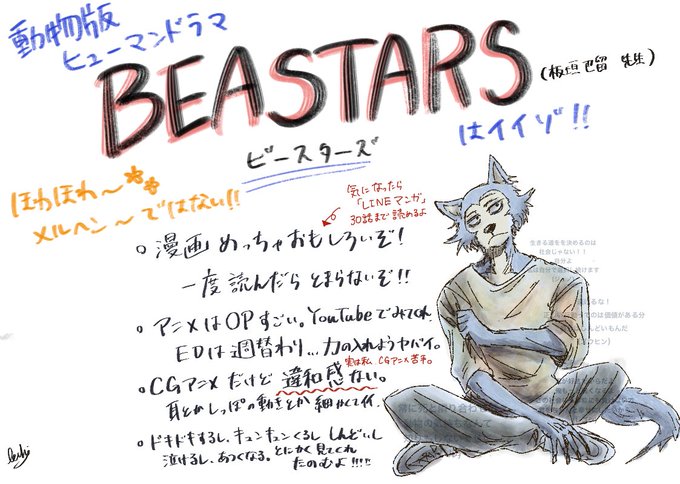 動物版
ヒューマンドラマ
BEASTARS
(板垣巴留 先生)
ビースターズ
はイイゾ!!
ほわほわ〜**
メルヘン〜ではない!!
気になったら
「LINEマンガ」
30話まで読めるよ
○漫画めっちゃおもしろいぞ!
一度読んだらとまらないぞ!!
○アニメはOPすごい。YouTubeでみてくれ
EDは週替わり...力の入れようヤバイ。
実は私、CGアニメ苦手。
○CGアニメだけど違和感ない。
耳とかしっぽの動きとか細かくて
○ドキドキするし、キュンキュンくるし しんどいし
泣けるし、あつくなる。とにかく見てくれ
たのむよ!!!!!
生きる道をを決めるのは
社会じゃない!!